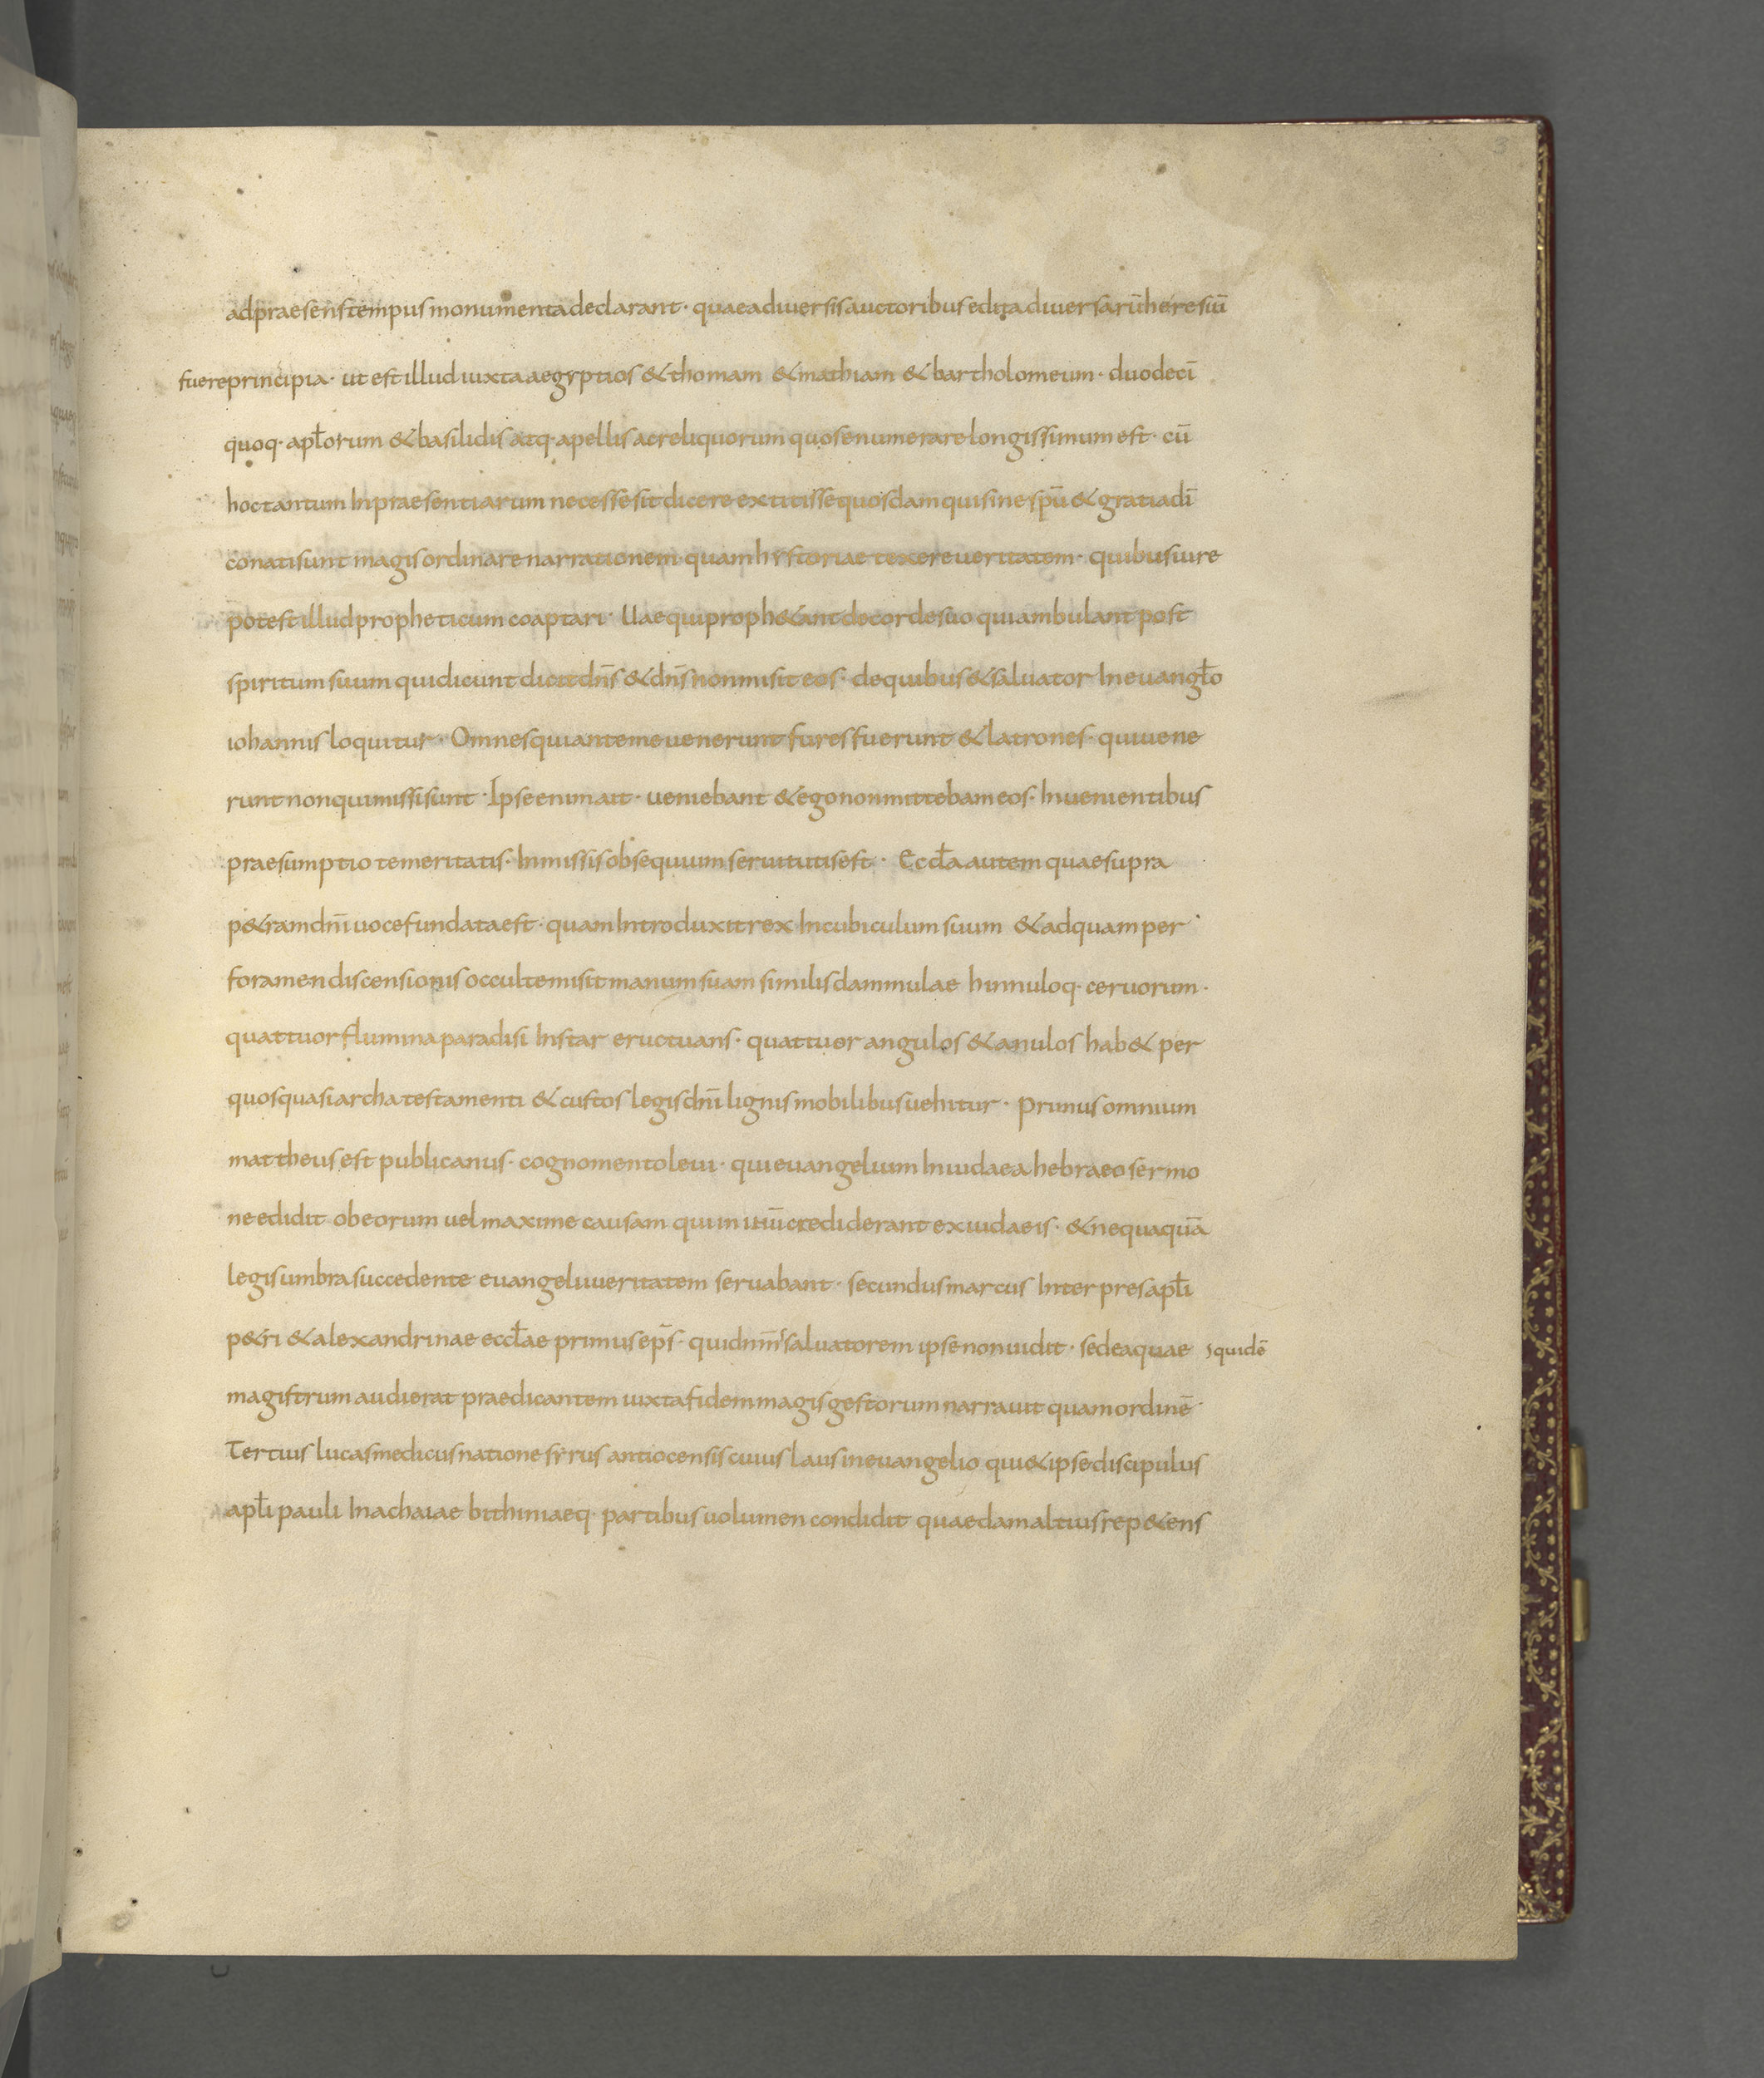 3
adpraesenstempusmonumentadeclarant· quaeadiuersisauctoribusedita diuersarūheresiū
fuereprincipia· ut est illud iuxta aegyptios &thomam &mathiam &bartholomeum· duodecī
quoq· apƚorum &basilidis atq· apellis acreliquorum quosenumerarelongissimum est· cū
hoctantum Inpraesentiarum necessesit dicere extitissequosdam quisine spū &gratiadī
conatisunt magisordinare narrationem· quamhystoriae texereueritatem· quibusiure
potest illudpropheticum coaptari· Uaequiproph&ant decordesuo quiambulant post
spiritum suum quidicunt dicit dn̄s &dn̄s nonmisit eos· dequibus&saluator Ineuangƚo
iohannis loquitur· Omnesquiantemeuenerunt furesfuerunt &latrones· quiuene
runt nonquimissisunt· Ipseenim ait· ueniebant &egononmittebameos· Inuenientibus
praesumptio temeritatis· Inmissisobsequium seruitutisest· Eccƚa autem quaesupra
p&ramdn̄i uocefundataest· quamIntroduxitrex Incubiculum suum &adquamper
foramendiscensionisoccultemisit manumsuam similisdammulae hinnuloq· ceruorum·
quattuorflumina paradisi Instar eructuans· quattuor angulos &anulos hab& per
quosquasiarchatestamenti &custos legisdn̄i lignismobilibusuehitur· primusomnium
mattheusest publicanus· cognomentoleui· quieuangelium Iniudaea hebraeosermo
needidit obeorum uelmaxime causam quiin ih̄ū crediderant exiudaeis· &nequaquā
legisumbrasuccedente euangeliiueritatem seruabant· secundusmarcus Interpresapƚi
p&ri &alexandrinae eccƚae primusep̄s· quidn̄m saluatorem ipse nonuidit· sedeaquae squidē
magistrum audierat praedicantem iuxtafidemmagisgestorumnarrauit quamordinē
Tertius lucasmedicusnatione syrus antiocensis cuius laus ineuangelio qui&ipsediscipulus
apƚi pauli Inachaiae bithiniaeq· partibus uolumen condidit quaedamaltiusrep&ens